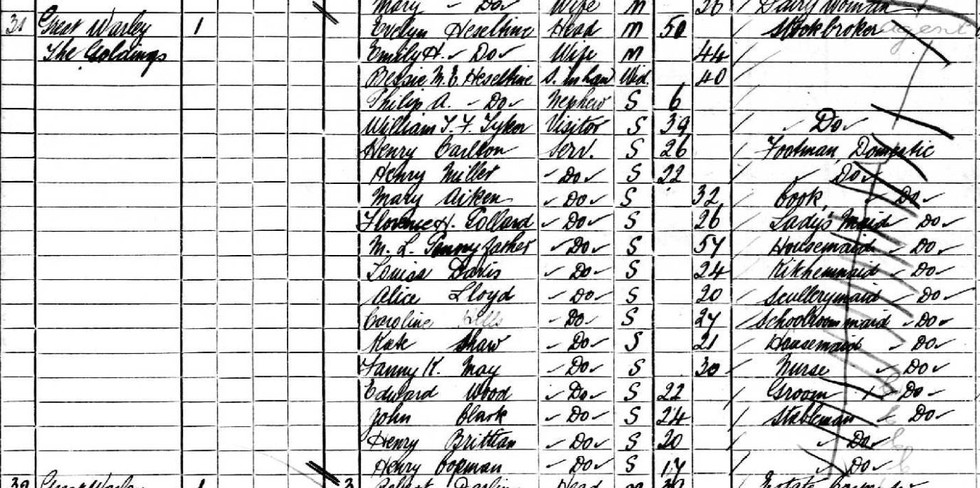 Mary Do Wife M 26 Dairy Woman
31 Great Warley 1 Evelyn Heseltine Head M 50 Stockbroker agent
The Goldings Emily H. Do Wife M 44
Bessie M. E. Heseltine S. in law Wid. 40
Philip A. Do Nephew S 6
William T. F. Visitor S 39 Do
Henry Carlton Serv. S 26 Footman Domestic
Henry Miller Do S 22 Do
Mary Aiken Do S 32 Cook Do
Florence H. Pollard Do S 26 Ladys Maid Do
M. L. Pennyfather Do S 57 Housemaid Do
Louisa Davis Do S 24 Kitchenmaid Do
Alice Lloyd Do S 20 Scullerymaid Do
Caroline Do S 27 Schoolroom maid Do
Kate Shaw Do S 21 Housemaid Do
Fanny K. May Do S 30 Nurse Do
Edward Wood Do S 22 Groom Do
John Clark Do S 24 Stableman Do
Henry Brittan Do S 20 Do
Henry Do S 17 Do
Great Warley 1 3 Head M